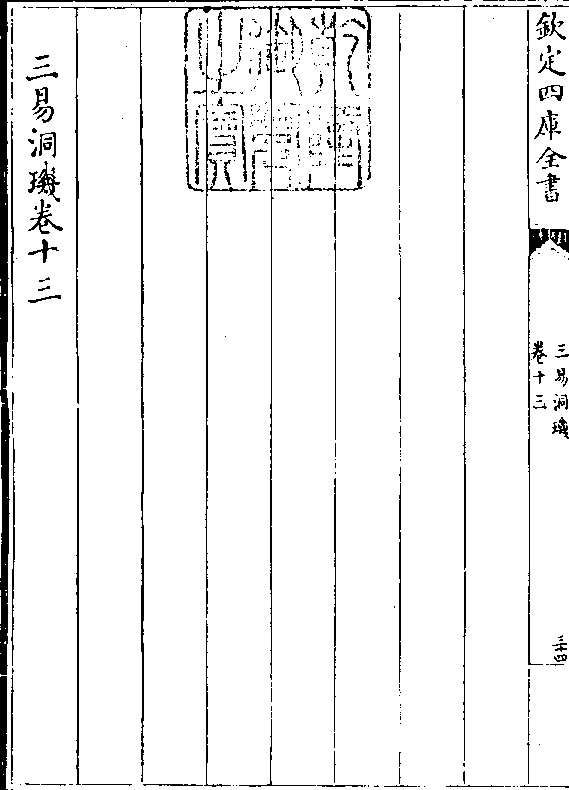 欽定四庫全書
三易洞璣
卷十三
三十四
乾隆
御覽
之寶
三易洞璣卷十三